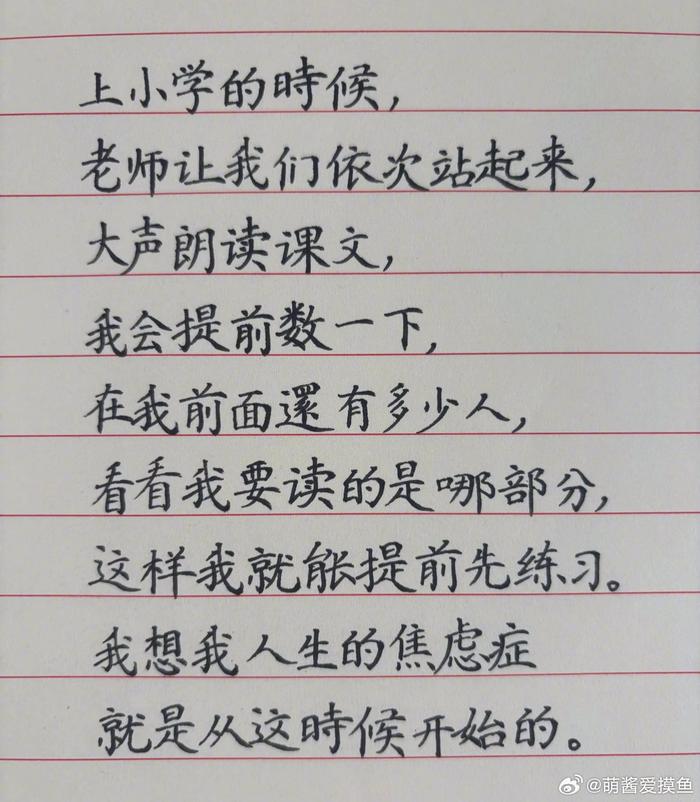 上小学的時候，
老师让我们依次站起来，
大声朗读课文，
我会提前数一下，
在我前面還有多少人，
看看我要读的是哪部分，
这样我就能提前先练习。
我想我人生的焦虑症
就是从这時候开始的。
@萌酱爱摸鱼